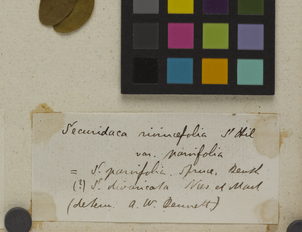 Securidaca rivinæfolia St Hil
var. parvifolia
= S. parvifolia, Spruce, Benth
(?) S. divaricata Nees et Mart
(determ. A. W. Bennett)